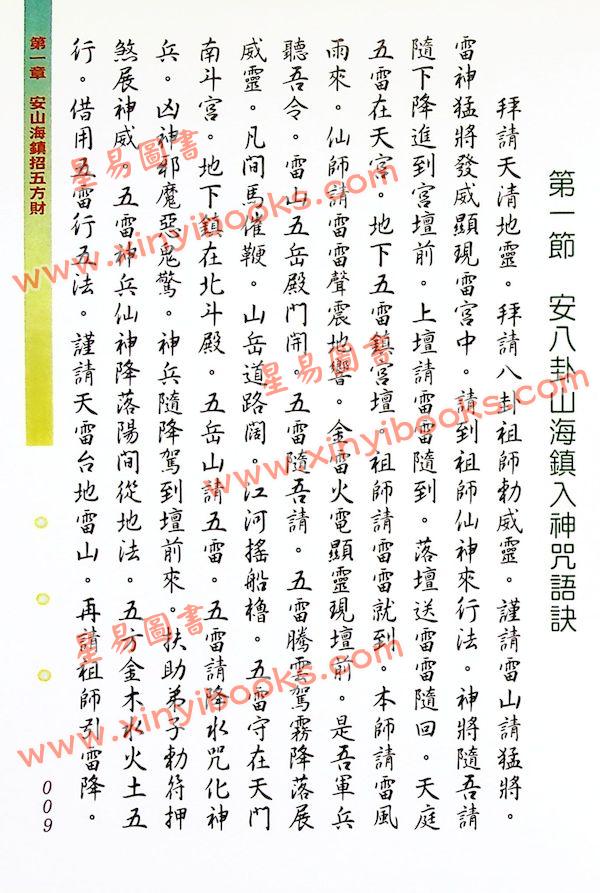 第一節　安八卦山海鎮入神咒語訣
拜請天清地靈。拜請八卦祖師勅威靈。謹請雷山請猛將。
雷神猛將發威顯現雷宮中。請到祖師仙神來行法。神將隨吾請
隨下降進到宮壇前。上壇請雷雷隨到。落壇送雷雷隨回。天庭
五雷在天宮。地下五雷鎮宮壇。祖師請雷雷就到。本師請雷風
雨來。仙師請雷雷聲震地響。金雷火電顯靈現壇前。是吾軍兵
聽吾令。雷山五岳殿門開。五雷隨吾請。五雷騰雲駕霧降落展
威靈。凡間馬催鞭。山岳道路闊。江河搖船櫓。五雷守在天門
南斗宮。地下鎮在北斗殿。五岳山請五雷。五雷請降水咒化神
兵。凶神邪魔惡鬼驚。神兵隨降駕到壇前來。扶助弟子勅符押
煞展神威。五雷神兵仙神降落陽間從地法。五方金木水火土五
行。借用五雷行五法。謹請天雷台地雷山。再請祖師引雷降。
第一章　安山海鎮招五方財
009
星易圖書
www.xinyibooks.com
星易圖書
www.xinyibooks.com
星易圖書
www.xinyibooks.com